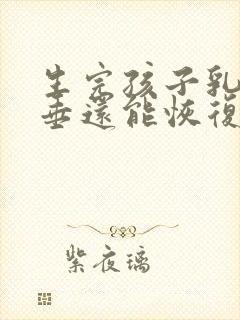 生完孩子乳
垂還能恢復
紫夜璃